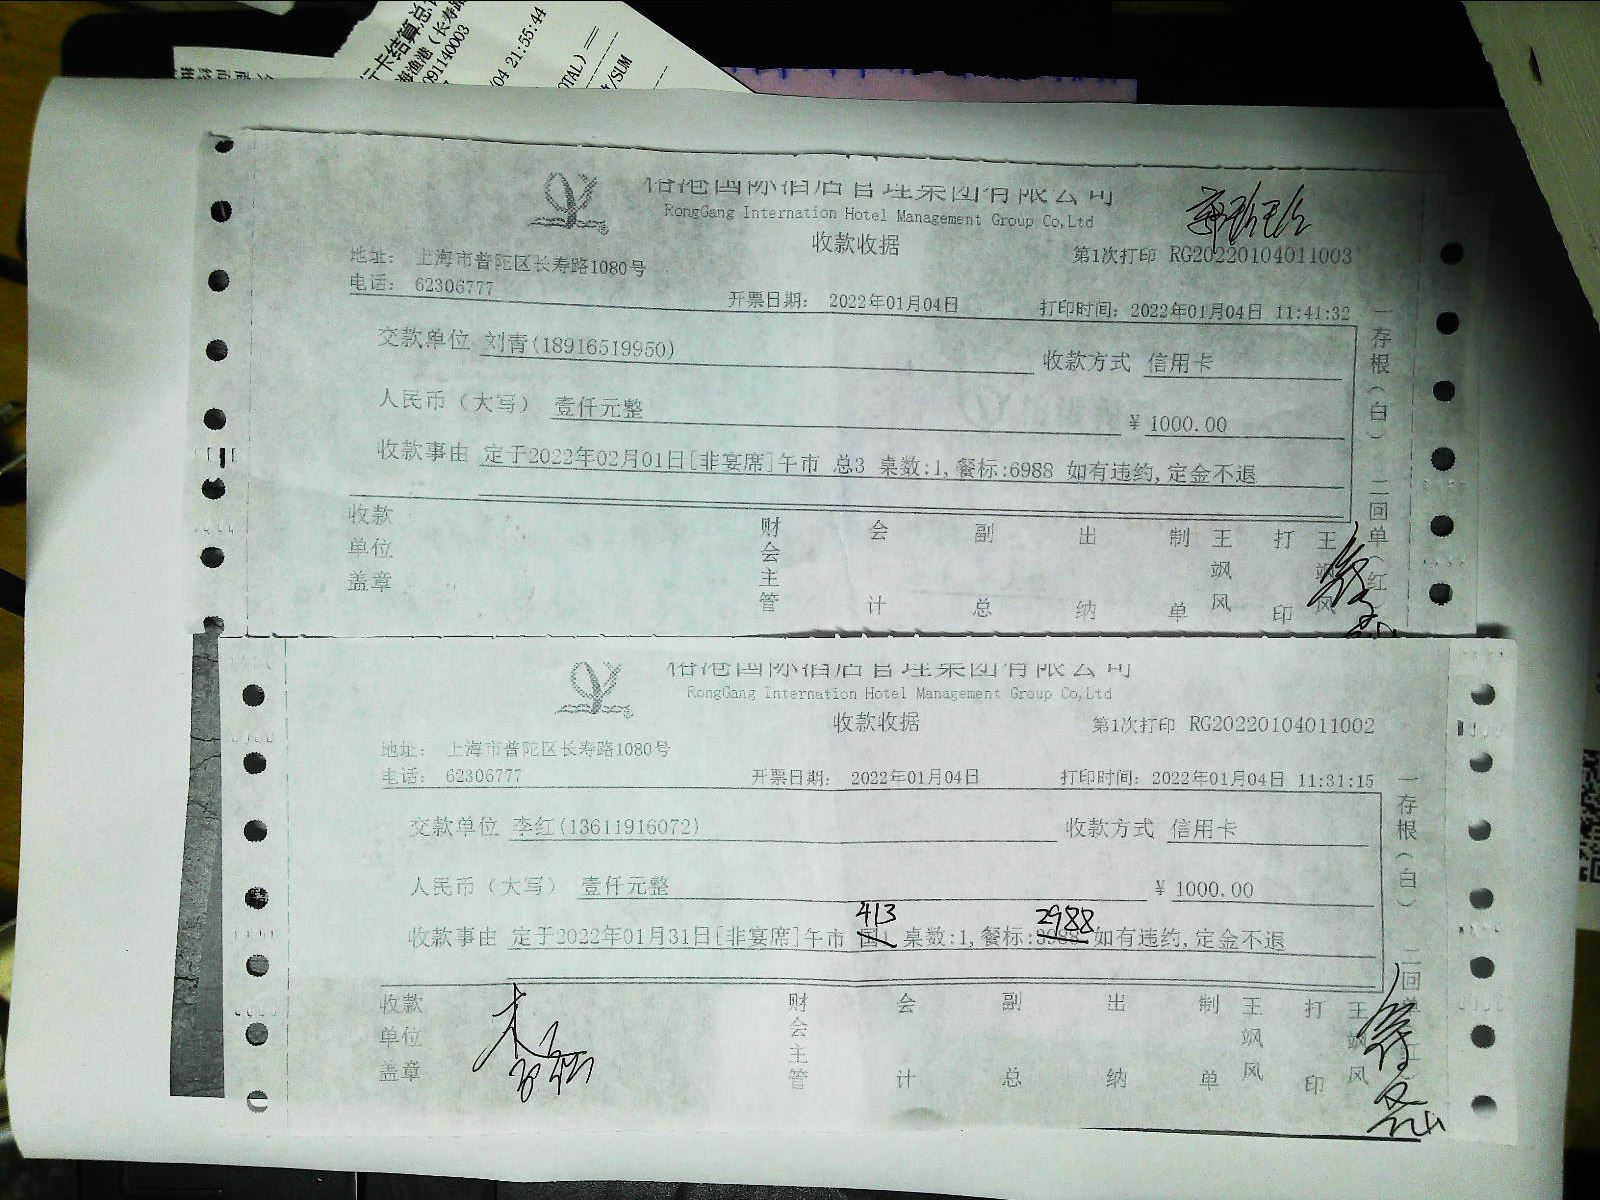 行卡结算总
海渔港（长寿路
091140003
/04 21:55:44
OTAL)
/SUM
国际酒店管理集团有限公司
RongGang Internation Hotel Management Group Co,Ltd
收款收据
第1次打印 RG20220104011003
地址： 上海市普陀区长寿路1080号
电话： 62306777
开票日期： 2022年01月04日
打印时间：2022年01月04日 11:41:32
交款单位 刘青(18916519950)
收款方式 信用卡
人民币（大写） 壹仟元整
¥ 1000.00
收款事由 定于2022年02月01日[非宴席]午市 总3 桌数:1,餐标:6988 如有违约,定金不退
一存根(白) 二回单(红
收款单位盖章
财会主管
会计
副总
出纳
制单 王飒风
打印 王飒风
国际酒店管理集团有限公司
RongGang Internation Hotel Management Group Co,Ltd
收款收据
第1次打印 RG20220104011002
地址： 上海市普陀区长寿路1080号
电话： 62306777
开票日期： 2022年01月04日
打印时间：2022年01月04日 11:31:15
交款单位 李红(13611916072)
收款方式 信用卡
人民币（大写） 壹仟元整
¥ 1000.00
413 2988
收款事由 定于2022年01月31日[非宴席]午市 国1 桌数:1,餐标:3988 如有违约,定金不退
一存根(白) 二回单(红
收款单位盖章
财会主管
会计
副总
出纳
制单 王飒风
打印 王飒风